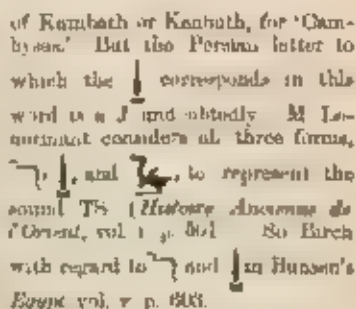 of Kambath or Kanbuth, for 'Cam-
byses.' But the Persian letter to
which the corresponds in this
word is a J
considers all three forms,
, , and , to represent the
sound TS (Histoire Ancienne de
l'Orient, vol p. So Birch
with regard to and in Bunsen's
Egypt vol. v p. 603.